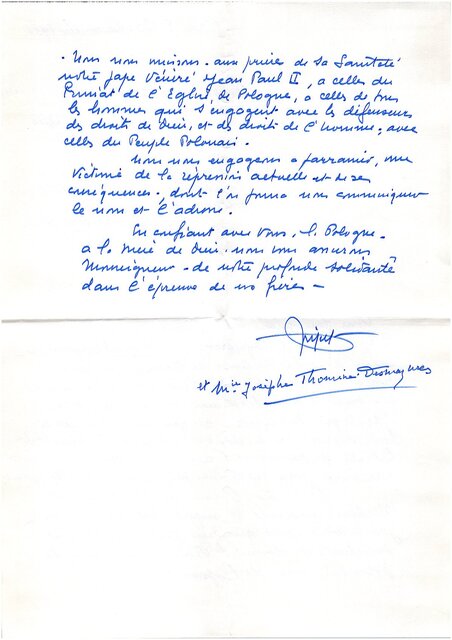 . Nous nous unissons - aux prières de sa Sainteté
notre pape Vénéré Jean Paul II, a celles du
Primat de l'Eglise de Pologne, a celles de tous
les hommes qui s'engagent avec les défenseurs
des droits de Dieu, et des droits de l'homme, avec
celles du Peuple Polonais.
Nous nous engageons a parrainer, une
victime de la répression actuelle et de ses
conséquences, dont l'on pourra nous communiquer
le nom et l'adresse.
En confiant avec Vous, la Pologne -
a la Mère de Dieu - nous vous assurons
Monseigneur - de notre profonde solidarité
dans l'épreuve de nos frères -
et Mme Josèphe Thomine-Desmazures